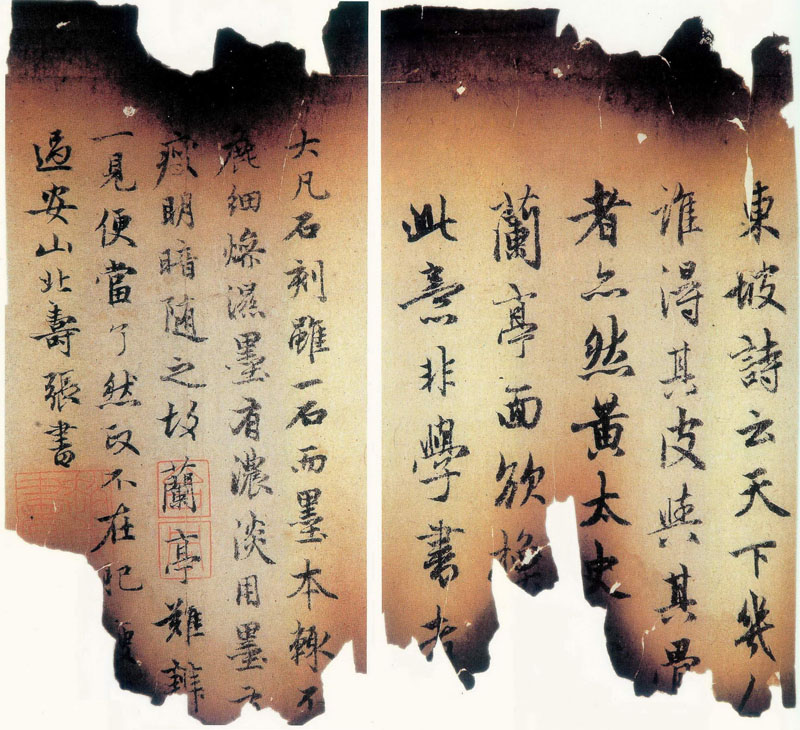 東坡詩云天下幾人
誰得其皮與其骨
者亦然黃太史
蘭亭面欲換
此意非學書者
大凡石刻雖一石而墨本輒不
麄細燥濕墨有濃淡用墨之
瘦明暗随之故蘭亭難辨
一見便當了然政不在肥
過安山北壽張書